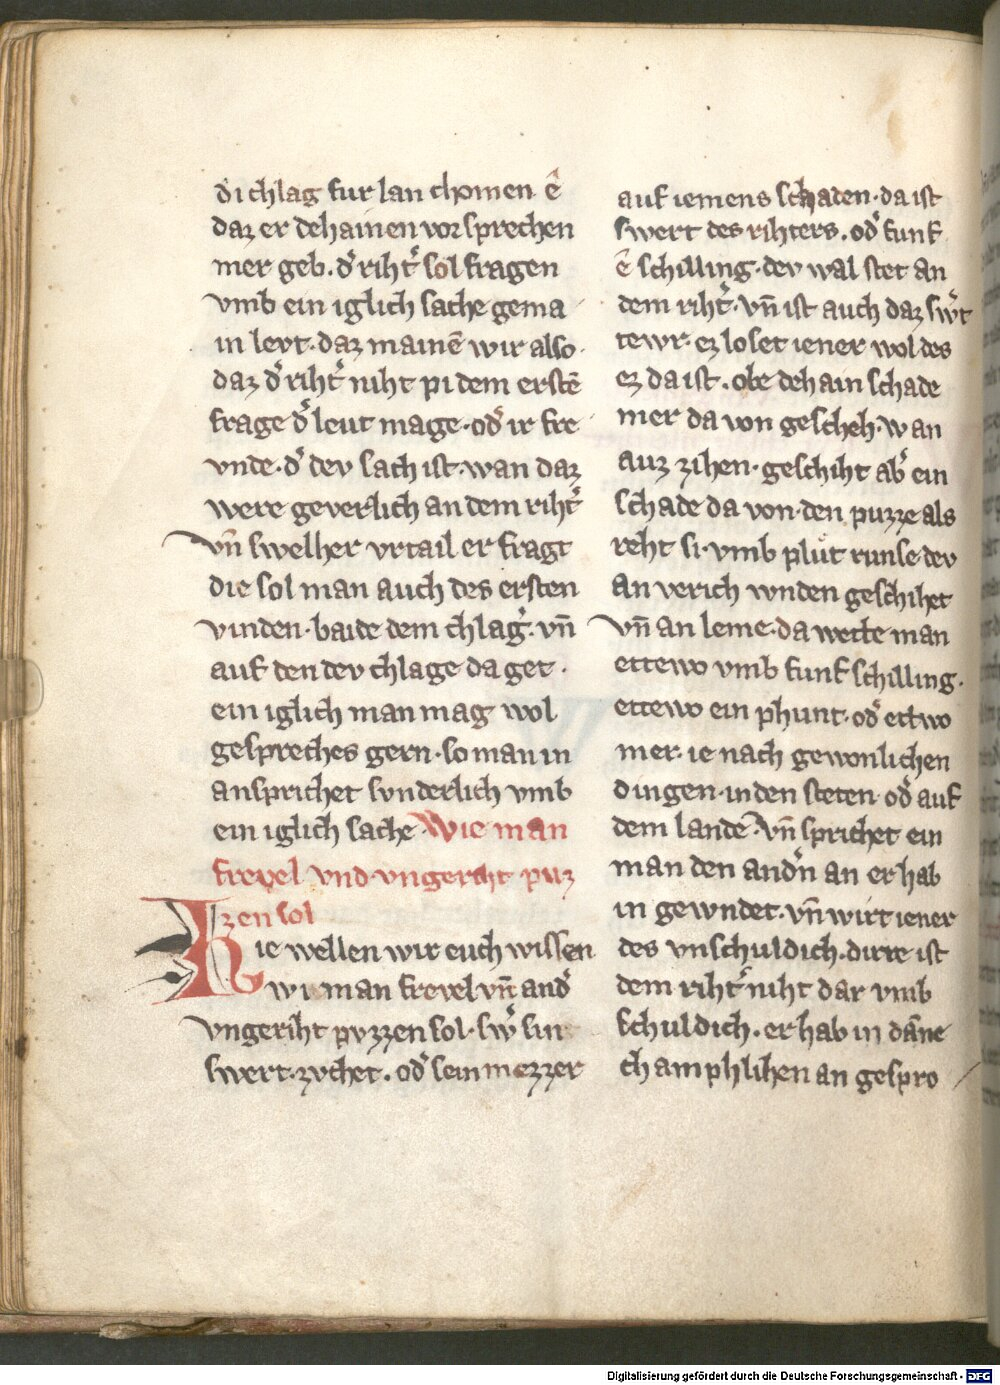 di chlag fur lan chomen ê
daz er dehainen vorsprechen
mer geb. d᾽ riht᾽ sol fragen
vmb ein iglich sache gema
in levt. daz mainē wir also.
daz d᾽ riht᾽ niht pi dem erstē
frage d᾽ leut mage. od᾽ ir fre
vnde. d᾽ dev sach ist. wan daz
were geverlich an dem riht᾽
vn̄ swelher vrtail er fragt
die sol man auch des ersten
vinden. baide dem chlag᾽. vn̄
auf den dev chlage da get.
ein iglich man mag wol
gespreches gern. so man in
ansprichet svnderlich vmb
ein iglich sache. Wie man
frevel vnd vngericht puz
zen sol
Hie wellen wir euch wissen
wi man frevel vn̄ and᾽
vngeriht pvzzen sol. sw᾽ sin
swert. zvchet. od᾽ sein mezzer
auf iemens schaden. da ist
swert des rihters. od᾽ funf
ê schilling. dev wal stet an
dem riht᾽. vn̄ ist auch daz sw᾽t
tewr. ez loset iener wol des
ez da ist. obe dehain schade
mer da von gescheh. wan
auz zihen. geschiht ab᾽ ein
schade da von. den puzze als
reht si. vmb plůt runse. dev
an verich wnden geschihet
vn̄ an leme. da wette man
ettewo vmb funf schilling.
ettewo ein phunt. od᾽ ettwo
mer. ie nach gewonlichen
dingen. in den steten. od᾽ auf
dem lande. Vn̄ sprichet ein
man den and᾽n an er hab
in gewndet. vn̄ wirt iener
des vnschuldich. dirre ist
dem riht᾽ niht dar vmb
schuldich. er hab in dāne
champhlihen an gespro
Digitalisierung gefördert durch die Deutsche Forschungsgemeinschaft - DFG